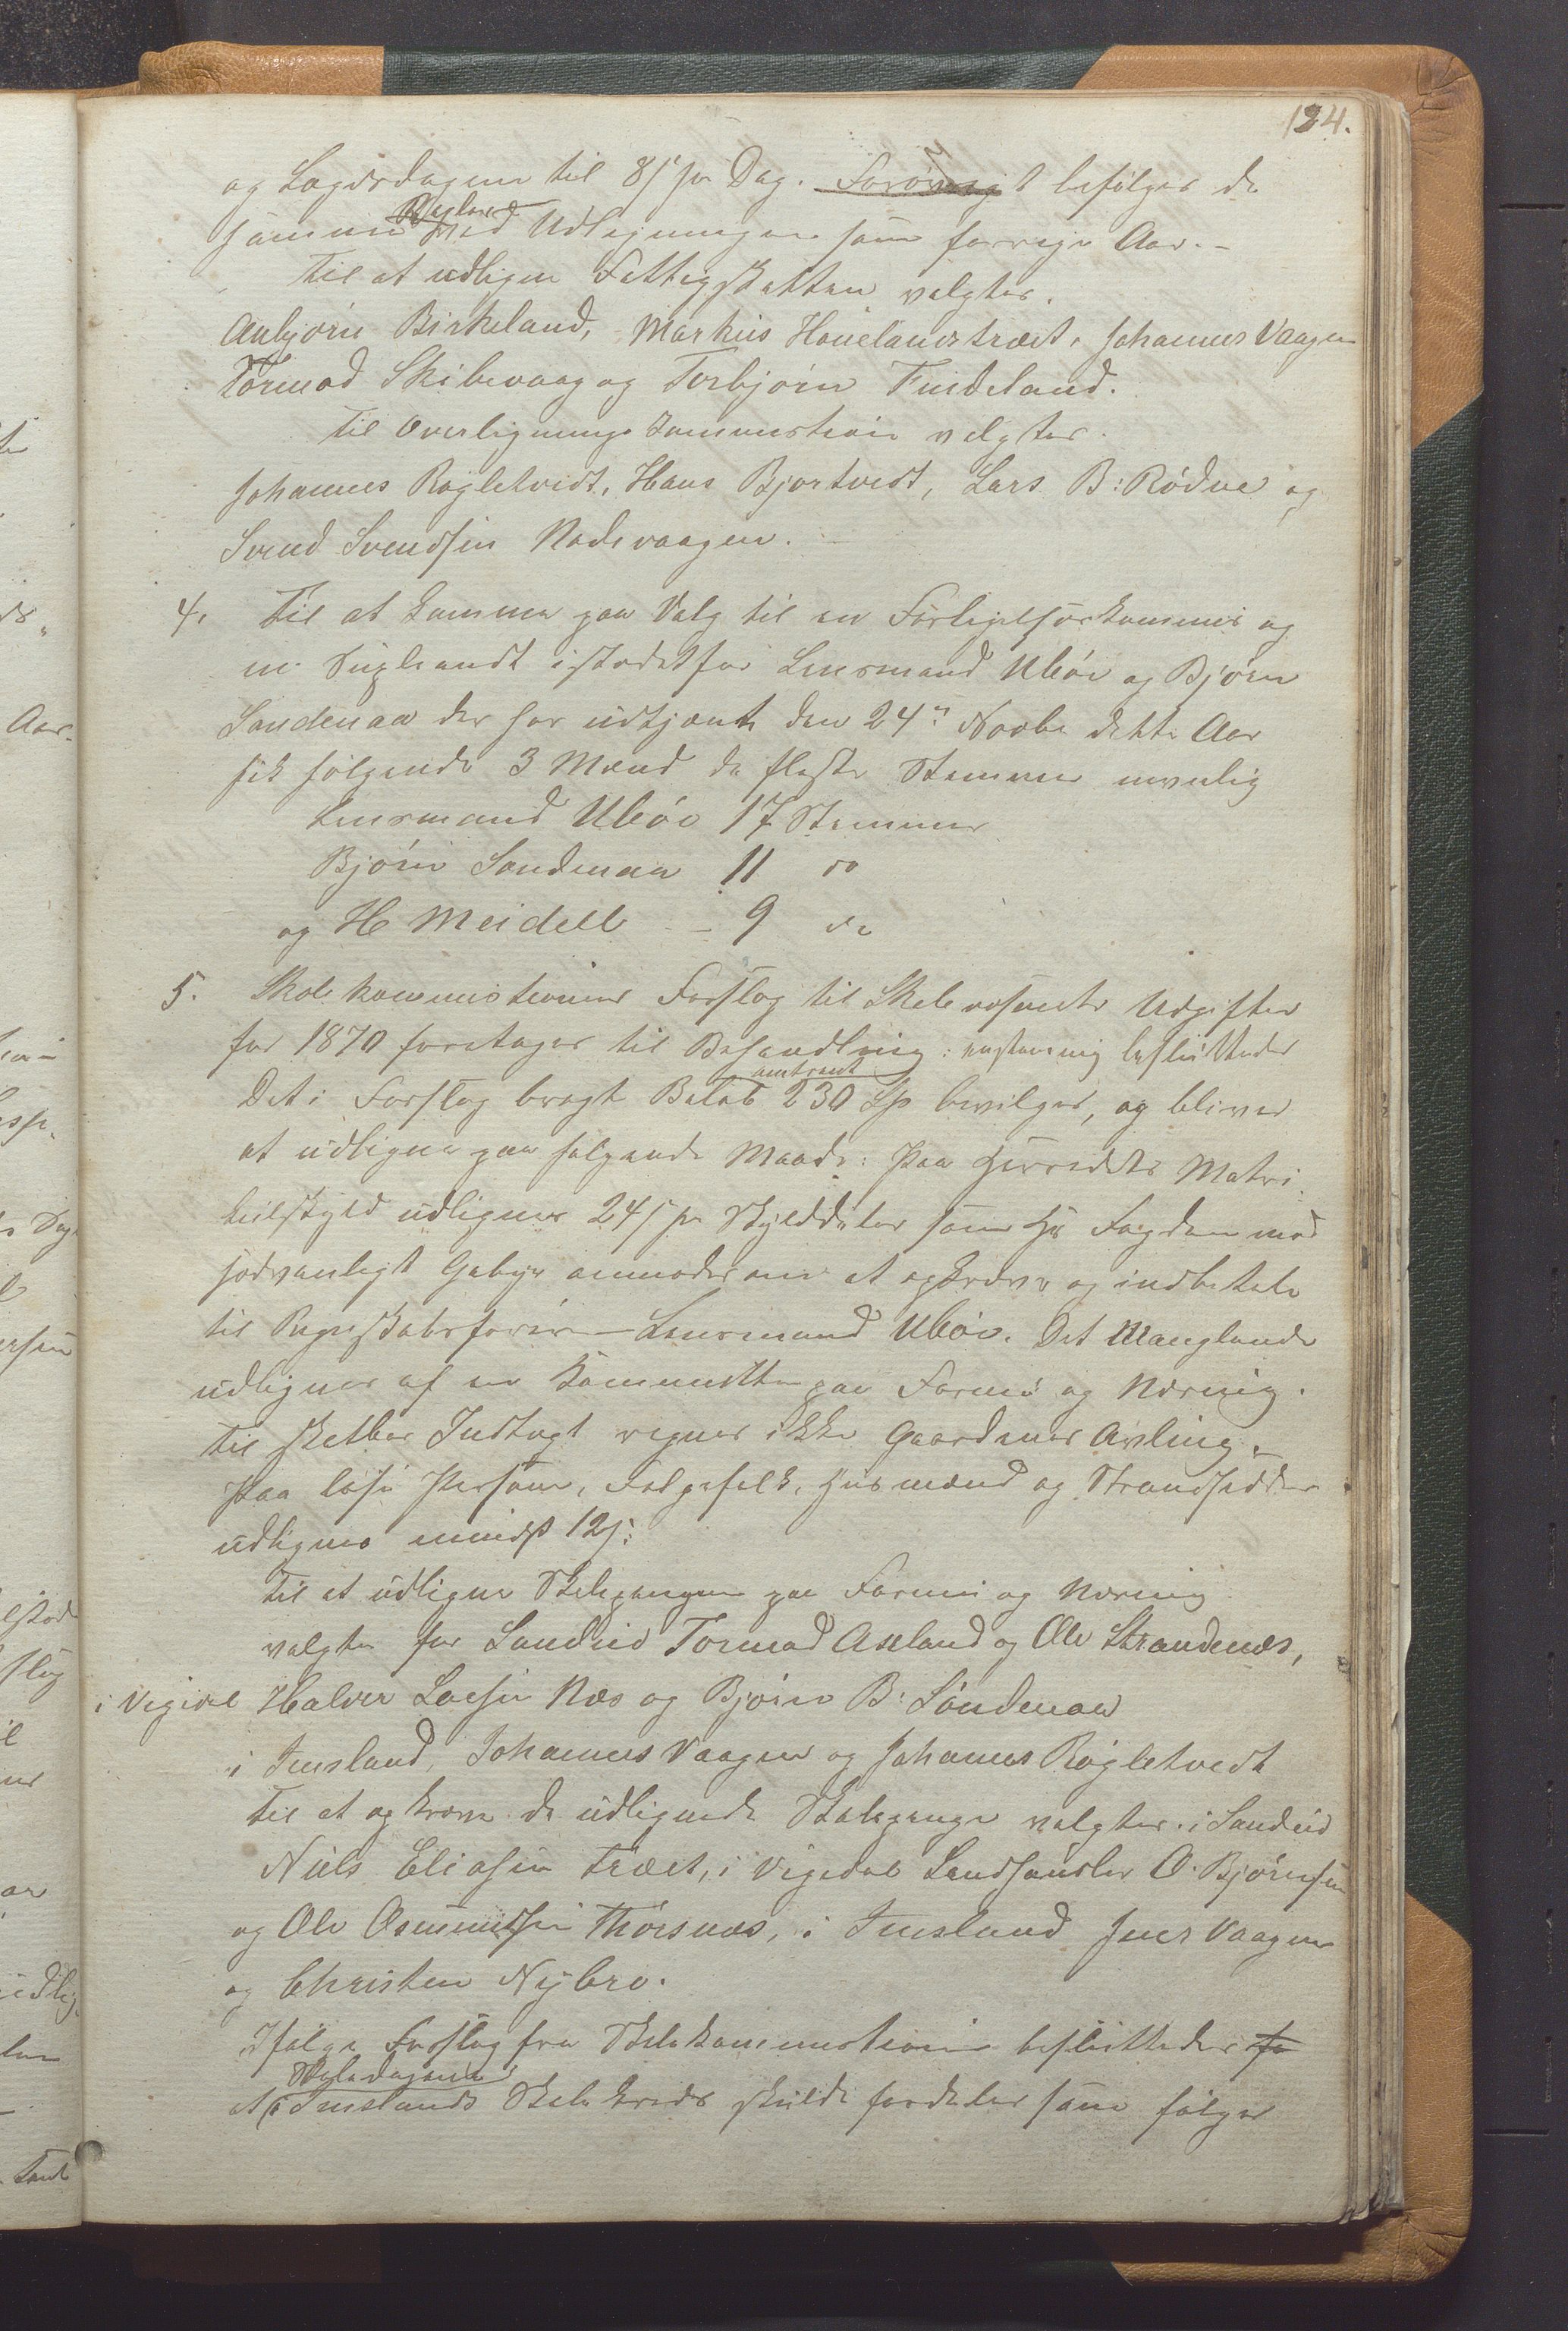 124.
og Lægdsdagene til 8 s pr Dag. Forøvrigt befølges de
samme Regler ved Udligningen som forrige Aar.-
Til at udligne Fattigskatten valgtes.
Anbjørn Birkeland, Markus Hovelandstræet, Johannes Vaagen
Tormod Skibevaag og Torbjørn Furdeland.
Til Overligningskommistion valgtes.
Johannes Røgletvedt, Hans Bjortvedt, Lars B: Rødne og
Svend Svendsen Nadevaagen.
4. Til at komme paa Valg til en Forligelseskommis og
en Supleandt istedetfor Lensmand Ubøe og Bjørn
Sandenaa der har udtjent den 24de Novbr dette Aar
fik følgende 3 Mænd de fleste Stemmer nemlig
Lensmand Ubøe 17 Stemmer
Bjørn Sandenaa 11 do
og H Meidell - 9 do
5. Skolekommistionens Forslag til Skolevæsenets Udgifter
for 1870 foretages til Behandling: enstemmig besluttedes
Det i Forslag bragt Beløb omtrent 230 Sp bevilges, og bliver
at udligne paa følgende Maade: Paa Herredets Matri-
kulskyld udlignes 24 s pr Skylddaler som Hr Fogden mod
sedvanligt Gebyr anmodes om at opkræve og indbetale
til Regnskabsfører Lensmand Ubøe. Det Manglende
udlignes af en Kommitte paa Formue og Næring.
Til skatbar Indtægt regnes ikke Gaardenes Avling.
Paa løse Personer, Følgefolk, Husmænd og Strandsiddere
udlignes mindst 12 s:
Til at udligne Skolepengene paa Formue og Næring
valgtes for Sandeid Tormod Axeland og Ole Strandenæs,
i Vigedal Halvor Larsen Næs og Bjørn B: Sandenaa
i Imsland, Johannes Vaagen og Johannes Røgletvedt
Til at opkræve de udlignede Skolepenge valgtes. i Sandeid
Niels Eliasen Træet, i Vigedal Landhandler O. Bjørnsen
og Ole Osmundsen Thorsnæs, i Imsland Iver Vaagen
og Christen Nybru.
Ifølge Forslag fra Skolekommistionen besluttedes
at Skoledagene i Imslands Skolekreds skulde fordeles som følger